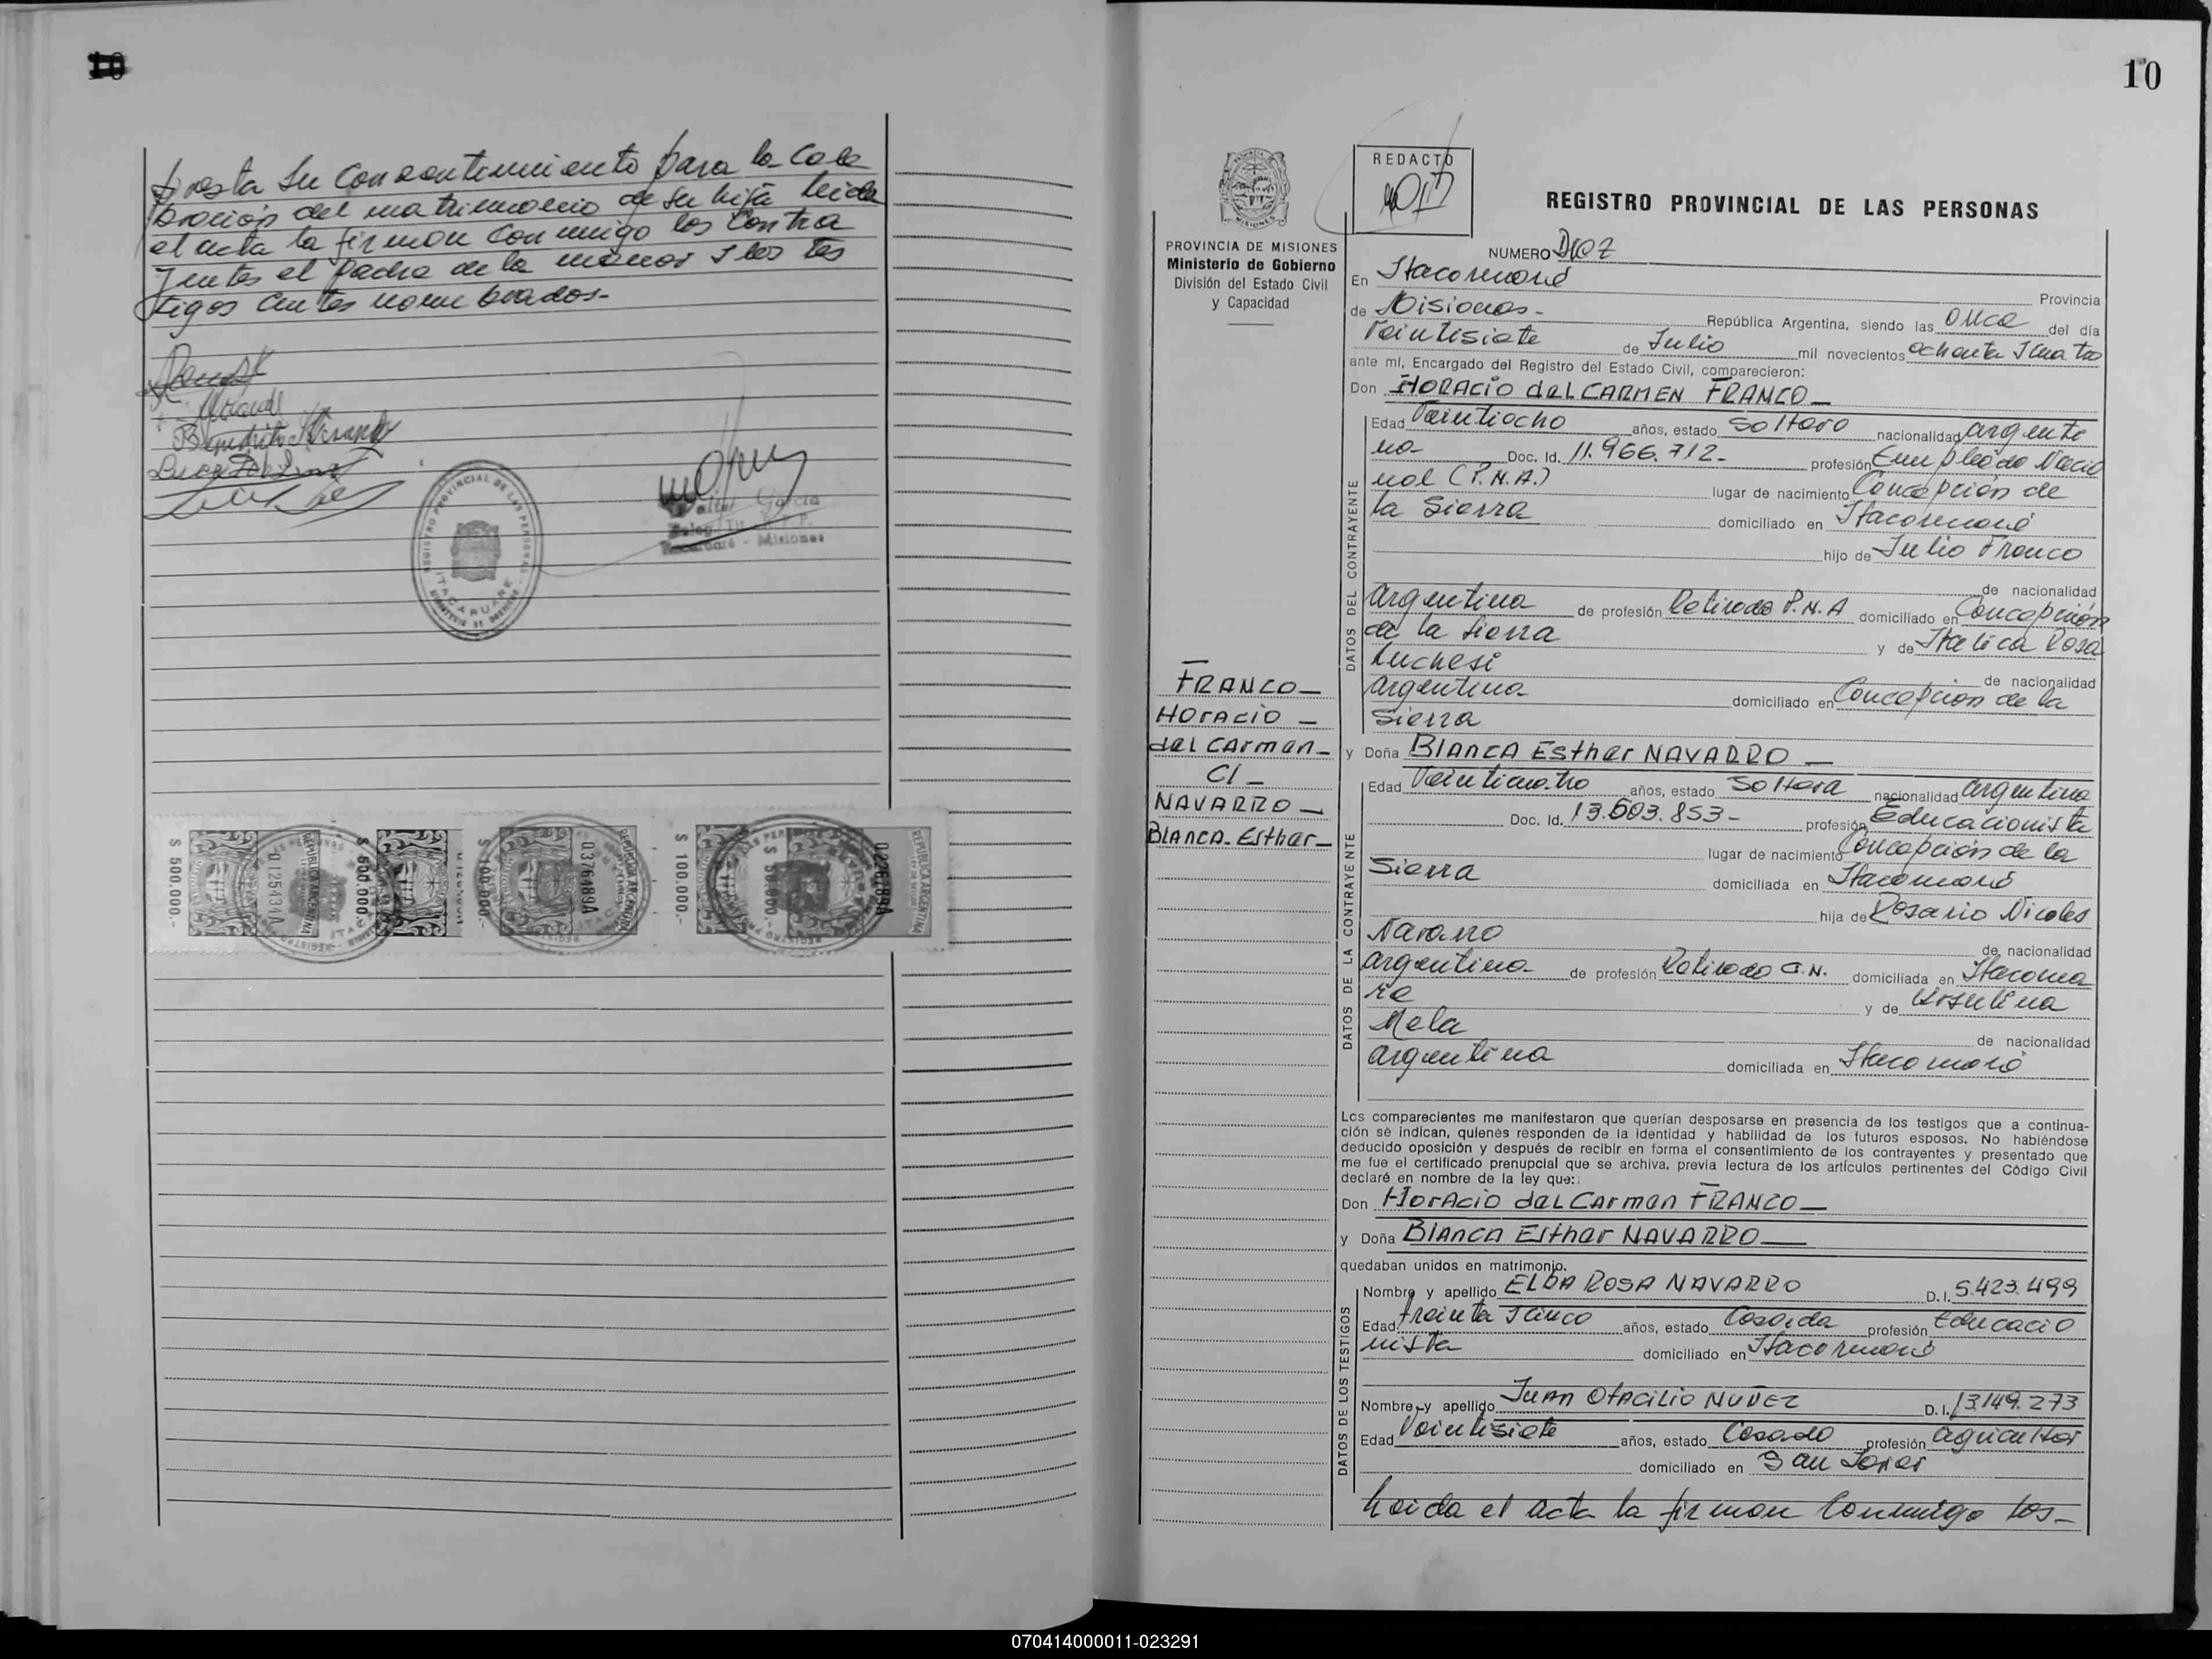 presta su consentimiento para la cele
bración del matrimonio de su hija leida
el acta la firman conmigo los contra
yentes el padre de la menor y los tes
tigos antes nombrados.-
REGISTRO PROVINCIAL DE LAS PERSONAS
ITACARUARE
Garcia
Itacaruaré - Misiones
$ 500.000.-
012543
REPUBLICA ARGENTINA
$ 500.000.-
$ 100.000.-
0376489A
REPUBLICA ARGENTINA
$ 100.000.-
$ 50.000.-
REPUBLICA ARGENTINA
10
REDACTO
PROVINCIA DE MISIONES
Ministerio de Gobierno
División del Estado Civil
y Capacidad
REGISTRO PROVINCIAL DE LAS PERSONAS
NUMERO DIEZ
En Itacaruaré Provincia
de Misiones - República Argentina, siendo las once del día
veintisiete de Julio mil novecientos ochenta y cuatro
ante mí, Encargado del Registro del Estado Civil, comparecieron:
Don HORACIO del CARMEN FRANCO
DATOS DEL CONTRAYENTE
Edad Veintiocho años, estado soltero nacionalidad argenti
no- Doc. Id. 11.966.712- profesión Empleado Nacio
nal (P.N.A.) lugar de nacimiento Concepción de
la Sierra domiciliado en Itacaruaré
hijo de Julio Franco
de nacionalidad
argentina de profesión Retirado P.N.A domiciliado en Concepción
de la Sierra y de Italica Rosa
Luchesi
de nacionalidad
argentina domiciliado en Concepcion de la
Sierra
FRANCO-
HOrAciO -
del CArmen-
C/ -
NAVARRO -
BlAncA-Esther-
y Doña BlAncA Esther NAVARRO -
DATOS DE LA CONTRAYENTE
Edad Veinticuatro años, estado soltera nacionalidad argentina
Doc. Id. 13.603.853- profesión Educacionista
lugar de nacimiento Concepción de la
Sierra domiciliada en Itacaruaré
hija de Rosario Nicoles
Navarro
de nacionalidad
argentino- de profesión Retirado G.N. domiciliada en Itacarua
ré y de Ursulina
Mela
de nacionalidad
argentina domiciliada en Itacaruaré
Los comparecientes me manifestaron que querían desposarse en presencia de los testigos que a continua-
ción se indican, quienes responden de la identidad y habilidad de los futuros esposos. No habiéndose
deducido oposición y después de recibir en forma el consentimiento de los contrayentes y presentado que
me fue el certificado prenupcial que se archiva, previa lectura de los artículos pertinentes del Código Civil
declaré en nombre de la ley que:
Don HorAcio del CArmen FRANCO -
y Doña BlAncA Esther NAVARRO
quedaban unidos en matrimonio.
DATOS DE LOS TESTIGOS
Nombre y apellido ELBA ROSA NAVARRO D.I. 5.423.499
Edad treinta y cinco años, estado Casada profesión Educacio
nista domiciliado en Itacaruaré
Nombre y apellido JUAN OTACILIO NUÑEZ D.I. 13.149.273
Edad Veintisiete años, estado Casado profesión agricultor
domiciliado en San Javier
Leida el acta la firman conmigo los-
070414000011-023291